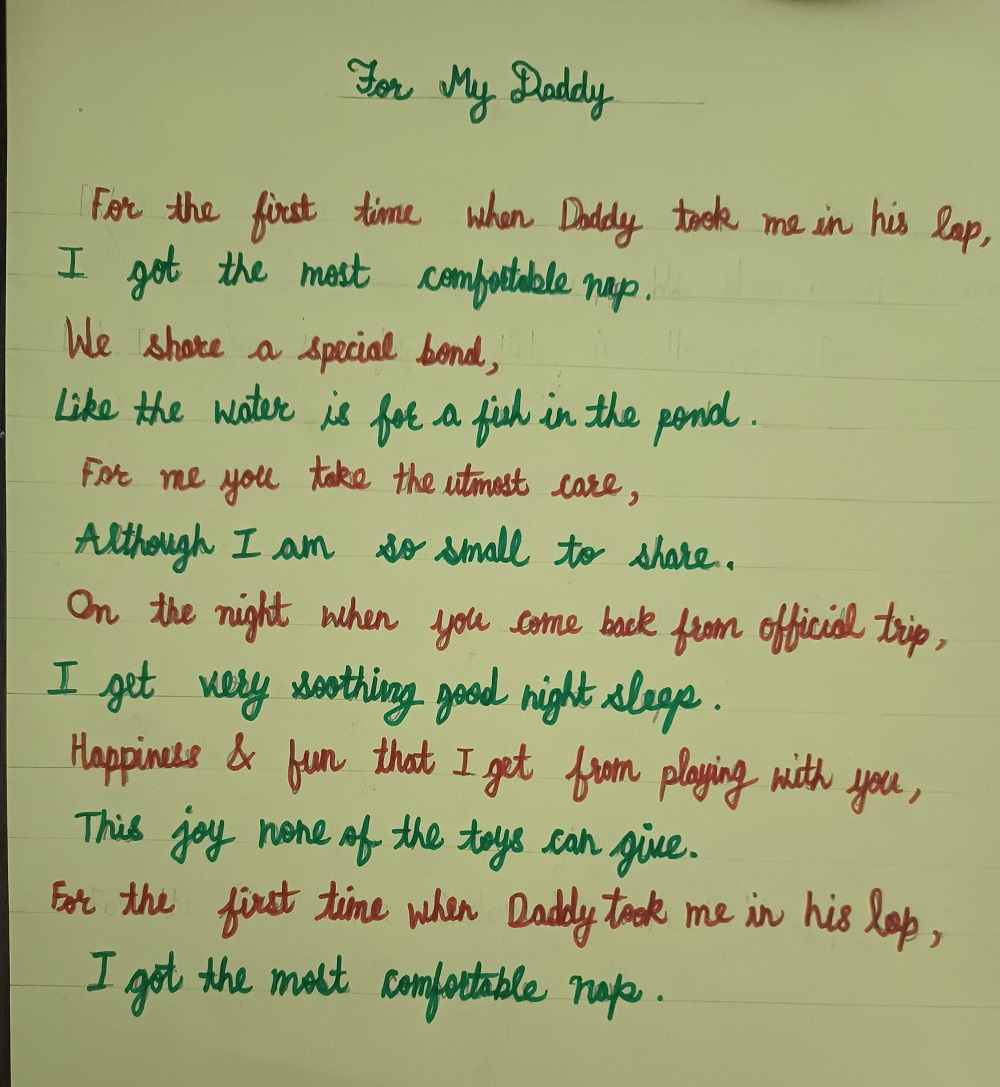 For My Daddy
For the first time when Daddy took me in his lap,
I got the most comfortable nap.
We share a special bond,
Like the water is for a fish in the pond.
For me you take the utmost care,
Although I am so small to share.
On the night when you come back from official trip,
I get very soothing good night sleep.
Happiness & fun that I get from playing with you,
This joy none of the toys can give.
For the first time when Daddy took me in his lap,
I got the most comfortable nap.